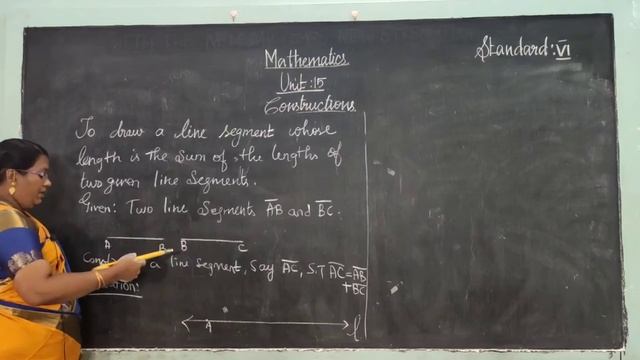 Mathematics
Standard: VI
Unit: 15
Constructions
To draw a line segment whose
length is the sum of the lengths of
two given line segments.
Given: Two line segments AB and BC.
A B B C
a line segment, Say AC, S.T AC = AB
+ BC
A l